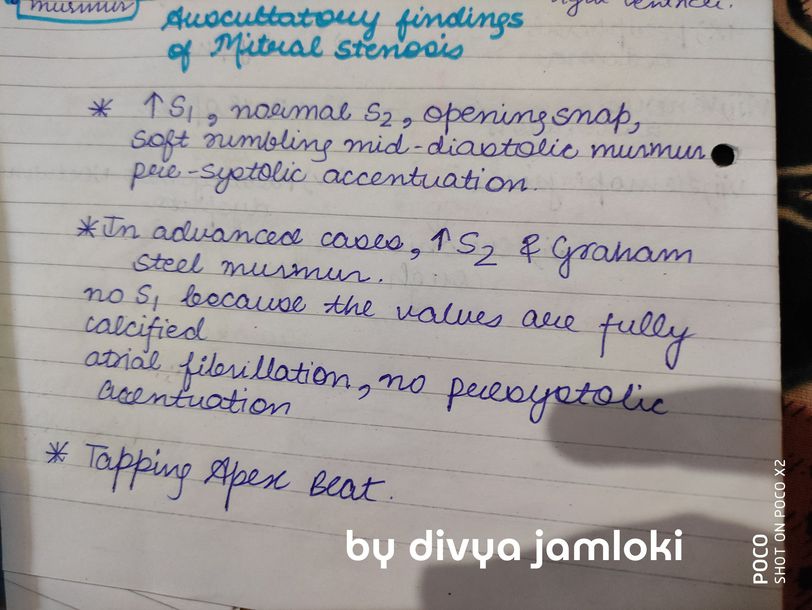 murmur
Auscultatory findings
of Mitral stenosis
* ↑S₁, normal S₂, opening snap,
soft rumbling mid-diastolic murmur
pre-systolic accentuation.
* In advanced cases, ↑S₂ & Graham
steel murmur.
no S₁ because the values are fully
calcified
atrial fibrillation, no presystolic
accentuation
* Tapping Apex Beat.
by divya jamloki
POCO
SHOT ON POCO X2